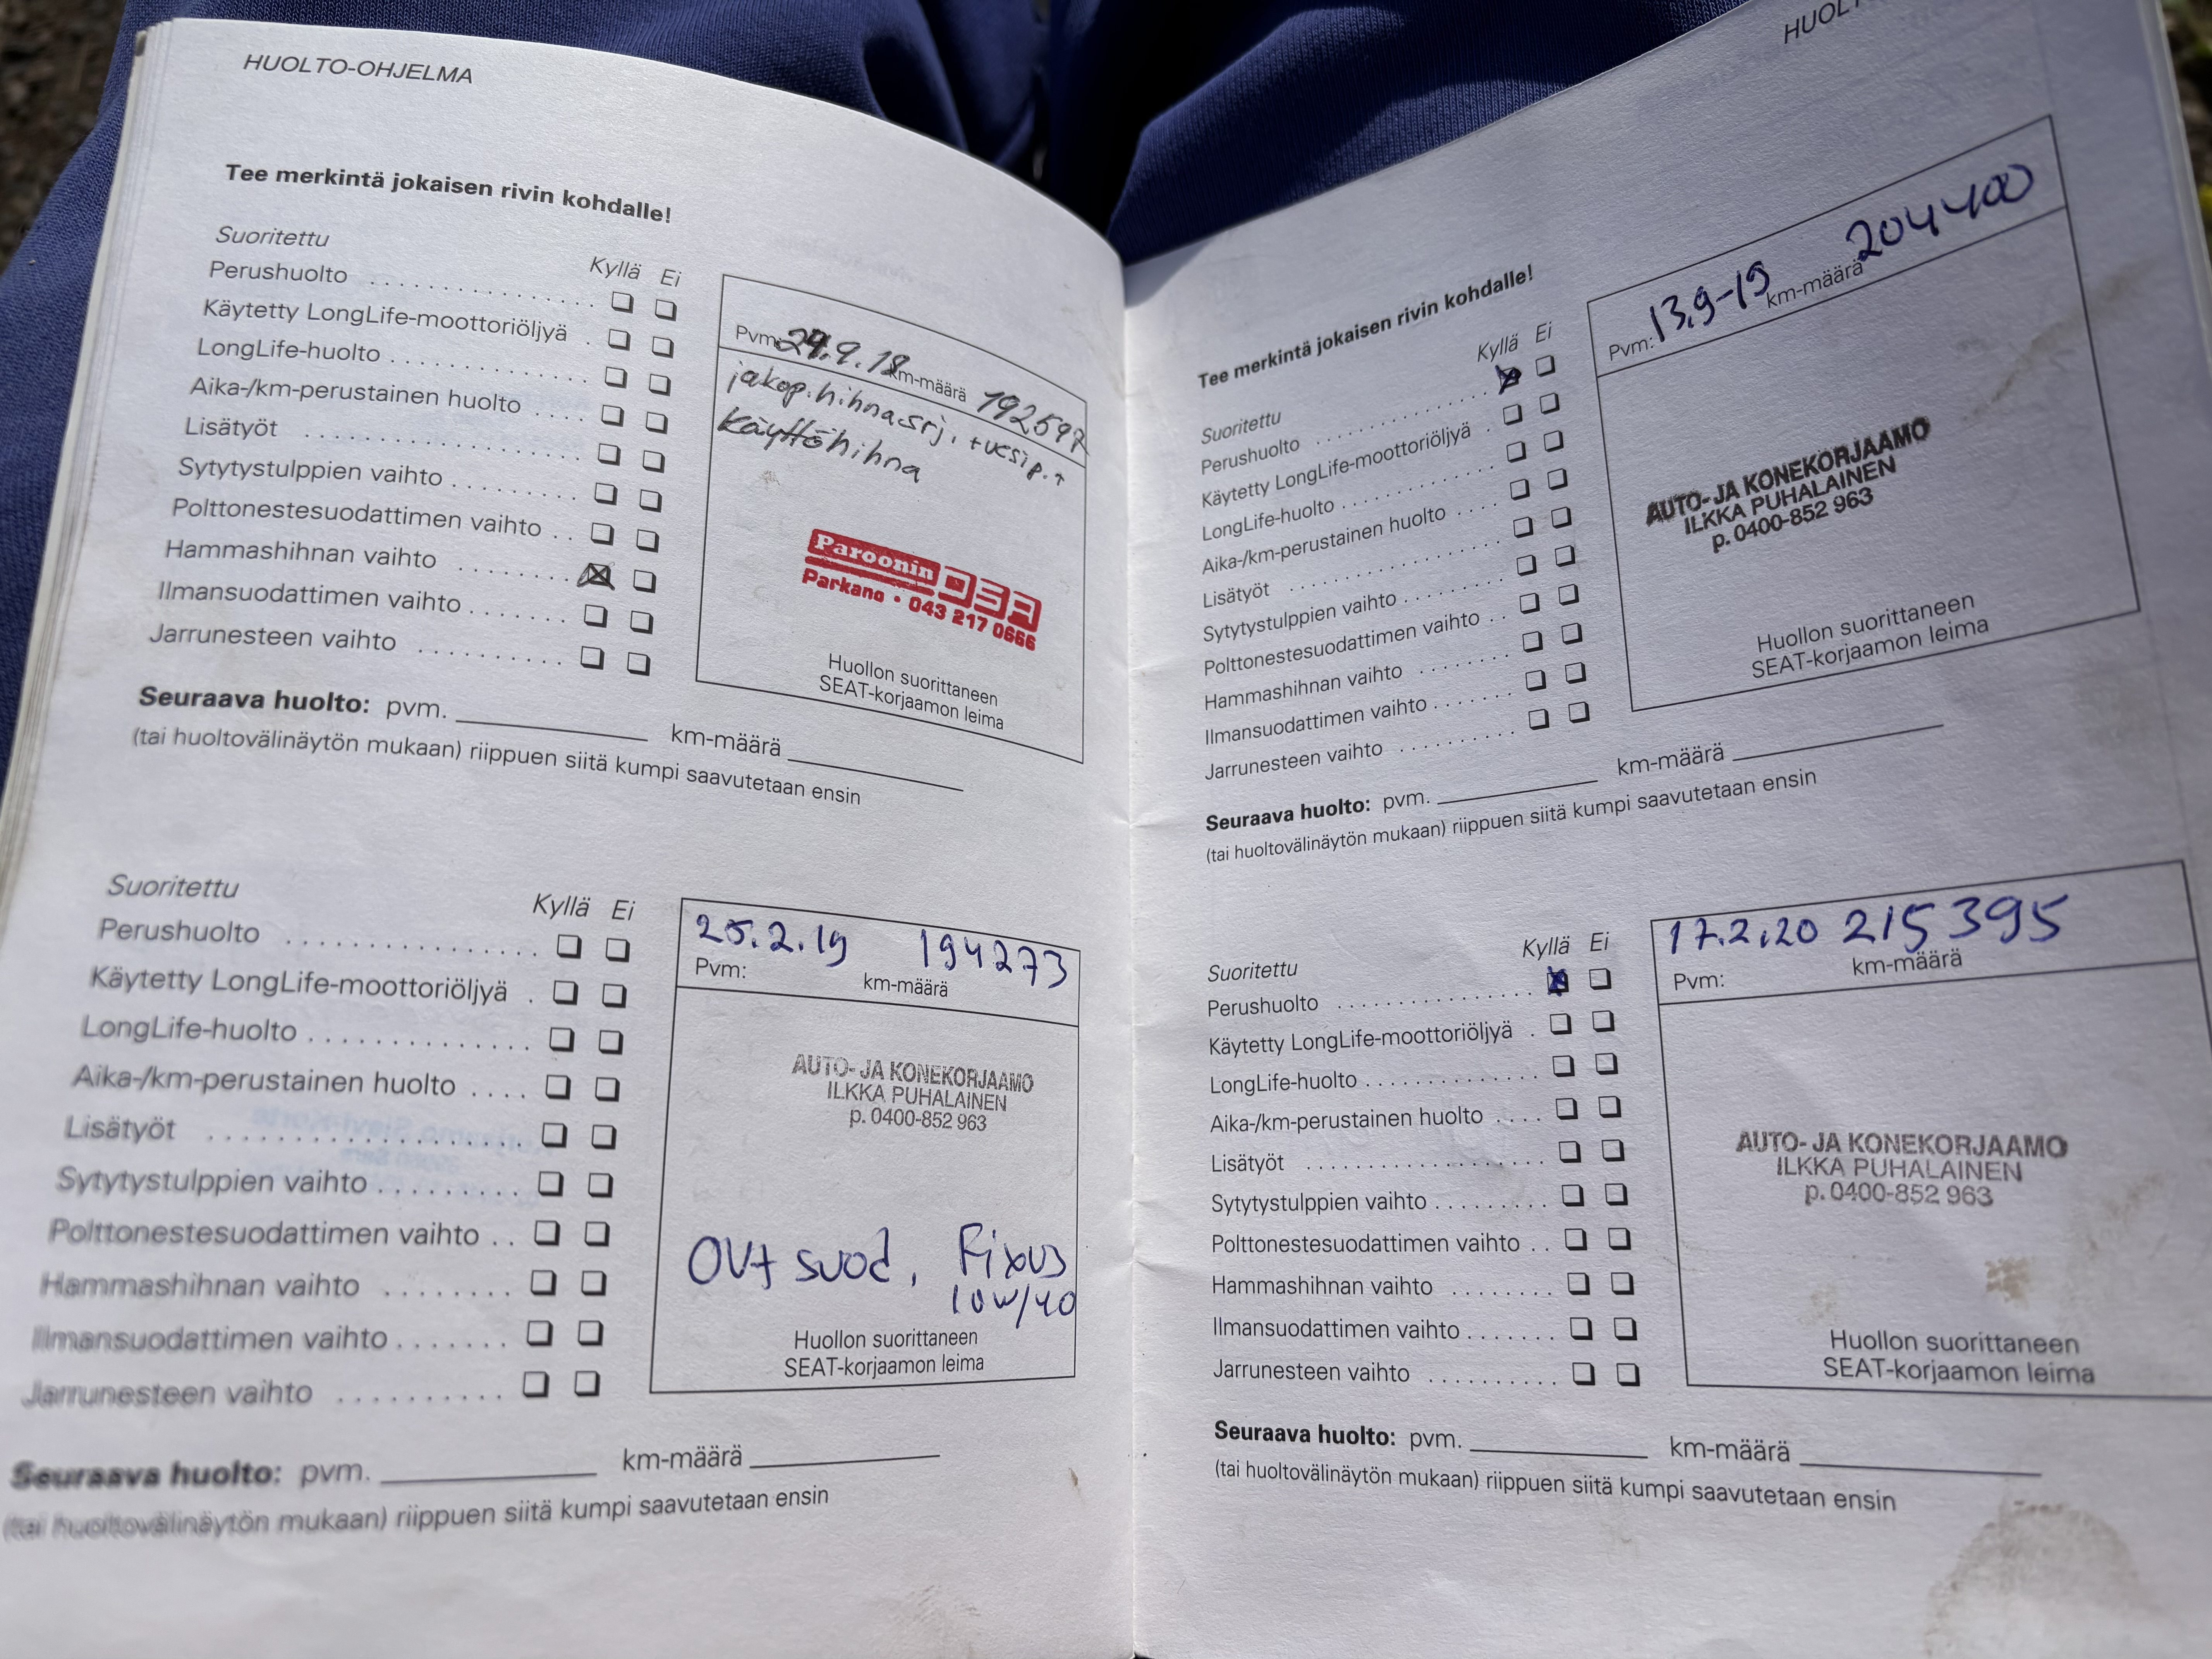 HUOLTO-OHJELMA
Tee merkintä jokaisen rivin kohdalle!
Suoritettu
Kyllä Ei
Perushuolto
Käytetty LongLife-moottoriöljyä
LongLife-huolto
Aika-/km-perustainen huolto
Lisätyöt
Sytytystulppien vaihto
Polttonestesuodattimen vaihto
Hammashihnan vaihto
Ilmansuodattimen vaihto
Jarrunesteen vaihto
Pvm: .9.18 km-määrä 192597
jakop.hihnasrj. + vesip.
Käyttöhihna
Paroonin OSA
Parkano • 043 217 0666
Huollon suorittaneen
SEAT-korjaamon leima
Seuraava huolto: pvm. km-määrä
(tai huoltovälinäytön mukaan) riippuen siitä kumpi saavutetaan ensin
Suoritettu
Kyllä Ei
Perushuolto
Käytetty LongLife-moottoriöljyä
LongLife-huolto
Aika-/km-perustainen huolto
Lisätyöt
Sytytystulppien vaihto
Polttonestesuodattimen vaihto
Hammashihnan vaihto
Ilmansuodattimen vaihto
Jarrunesteen vaihto
25.2.19 194273
Pvm: km-määrä
AUTO- JA KONEKORJAAMO
ILKKA PUHALAINEN
p. 0400-852 963
ÖV+ suod, Fixus
10w/40
Huollon suorittaneen
SEAT-korjaamon leima
Seuraava huolto: pvm. km-määrä
(tai huoltovälinäytön mukaan) riippuen siitä kumpi saavutetaan ensin
Tee merkintä jokaisen rivin kohdalle!
Suoritettu
Kyllä Ei
Perushuolto
Käytetty LongLife-moottoriöljyä
LongLife-huolto
Aika-/km-perustainen huolto
Lisätyöt
Sytytystulppien vaihto
Polttonestesuodattimen vaihto
Hammashihnan vaihto
Ilmansuodattimen vaihto
Jarrunesteen vaihto
Pvm: 13.9-19 km-määrä 204400
AUTO- JA KONEKORJAAMO
ILKKA PUHALAINEN
p. 0400-852 963
Huollon suorittaneen
SEAT-korjaamon leima
Seuraava huolto: pvm. km-määrä
(tai huoltovälinäytön mukaan) riippuen siitä kumpi saavutetaan ensin
Suoritettu
Kyllä Ei
Perushuolto
Käytetty LongLife-moottoriöljyä
LongLife-huolto
Aika-/km-perustainen huolto
Lisätyöt
Sytytystulppien vaihto
Polttonestesuodattimen vaihto
Hammashihnan vaihto
Ilmansuodattimen vaihto
Jarrunesteen vaihto
17.2.20 215395
Pvm: km-määrä
AUTO- JA KONEKORJAAMO
ILKKA PUHALAINEN
p. 0400-852 963
Huollon suorittaneen
SEAT-korjaamon leima
Seuraava huolto: pvm. km-määrä
(tai huoltovälinäytön mukaan) riippuen siitä kumpi saavutetaan ensin